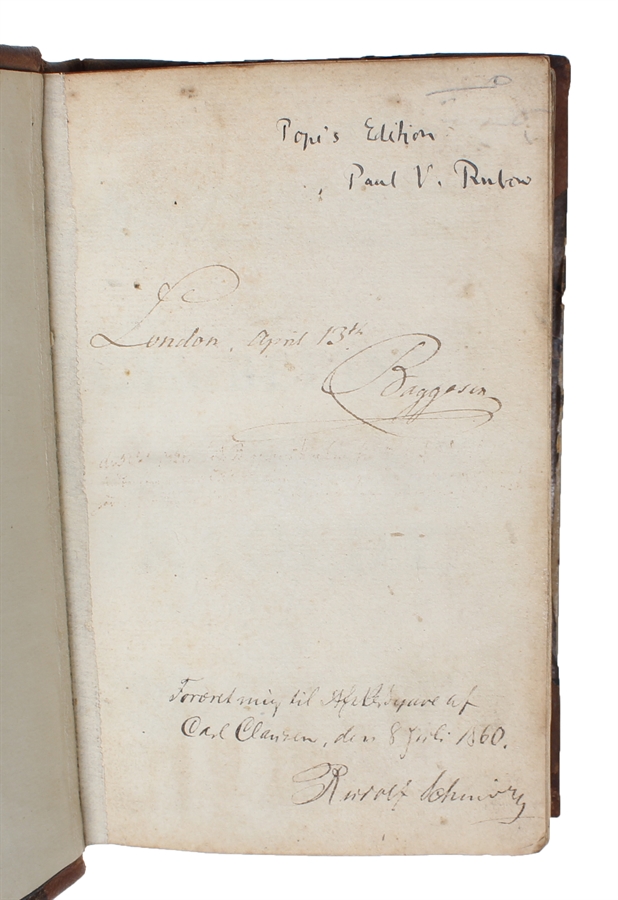 Pope's Edition
Paul V. Rubow
London, April 13th
Baggesen
Foræret mig til Afskedsgave af
Carl Clausen, den 8 Juli 1860.
Rudolf Schmidt